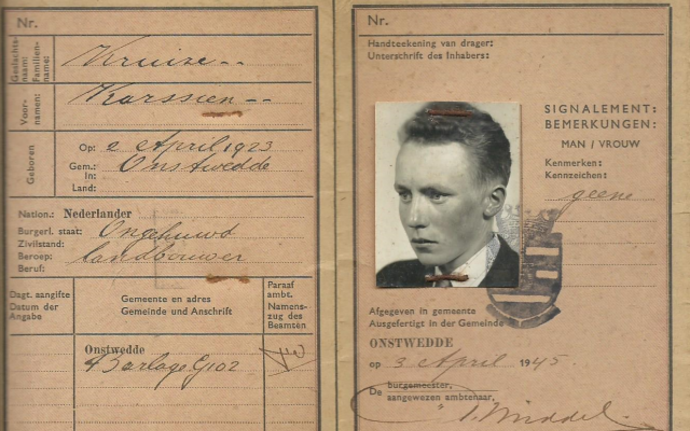 Nr.
Geslachts-
naam: Familien-
name:
Kruize
Voor-
namen:
Karssien
Geboren
Op: 2 April 1923
Gem.: Onstwedde
In:
Land:
Nation.: Nederlander
Burgerl. staat: Ongehuwd
Zivilstand:
Beroep: landbouwer
Beruf:
Dagt. aangifte
Datum der
Angabe
Gemeente en adres
Gemeinde und Anschrift
Paraaf
ambt.
Namens-
zug des
Beamten
Onstwedde
Barlage G102
Nr.
Handteekening van drager:
Unterschrift des Inhabers:
SIGNALEMENT:
BEMERKUNGEN:
MAN / VROUW
Kenmerken:
Kennzeichen:
geene
Afgegeven in gemeente
Ausgefertigt in der Gemeinde
ONSTWEDDE
op 3 April 1945
burgemeester,
De aangewezen ambtenaar,